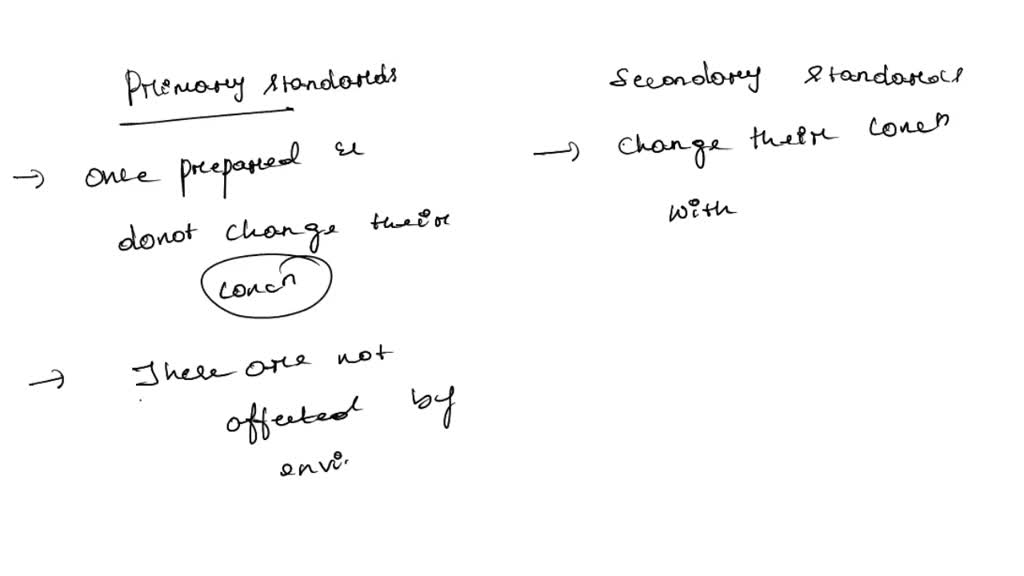 Primary standards
→ Once prepared &
donot change their
concn
→ These are not
affected by
envi.
Secondary standards
→ change their concn
with